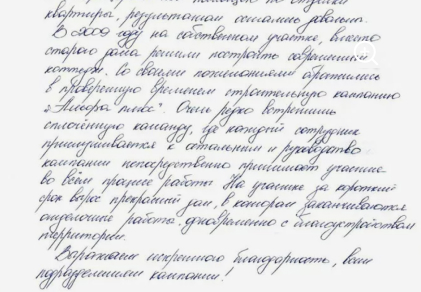 квартиры, результатом остались довольны.
В 2009 году на собственном участке, вместо
старого дома решили построить современный
коттедж. Со своими пожеланиями обратились
в проверенную временем строительную компанию
плюс". Очень редко встретишь
сплочённую команду, где каждый сотрудник
прислушивается к остальным и руководство
кампании непосредственно принимает участие
во всём процессе работы. На участке за короткий
срок вырос прекрасный дом, в котором заканчиваются
отделочные работы одновременно с благоустройством
территории.
Выражаем искреннюю благодарность, всем
подразделениям кампании!